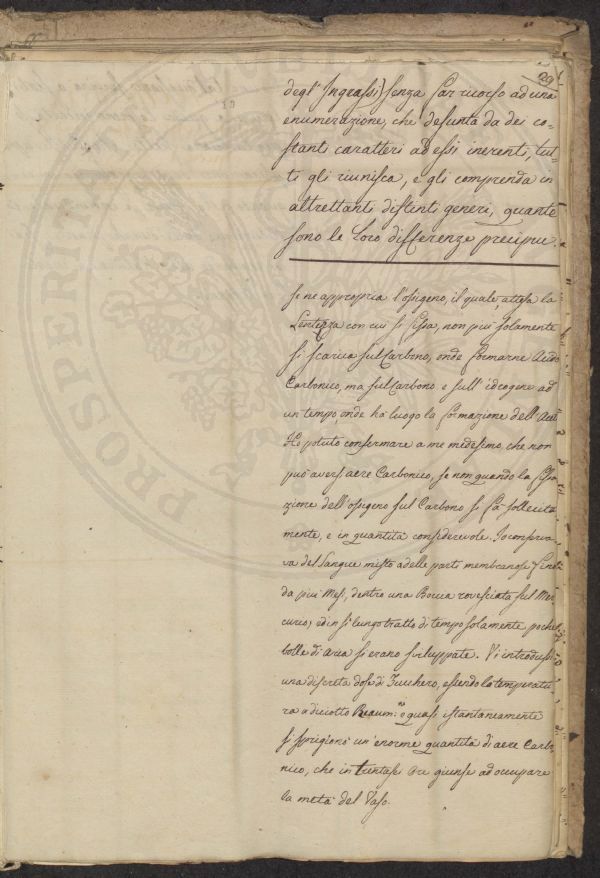 29
degl' Ingrassi) senza far ricorso ad una
enumerazione, che desunta da dei co=
stanti caratteri ad essi inerenti, tut=
ti gli riunisca, e gli comprenda in
altrettanti distinti generi, quante
sono le loro differenze precipue.
se ne appropria l'ossigeno, il quale, attesa la
Lentezza con cui si fissa, non più solamente
si scarica sul Carbono, onde formarne Acido
Carbonico, ma sul Carbono, e sull' idrogene ad
un tempo, onde hà luogo la formazione dell'
Ho potuto confermare a me medesimo, che non
può aversi aere Carbonico, se non quando la fissa
zione dell' ossigeno sul Carbono si fà sollecita
mente, e in quantità considerevole. Io conserva
va del Sangue misto a delle parti membranose fino
da più Mesi, dentro una Boccia rovesciata sul Mer
curio; ed in sì lungo tratto di tempo solamente poche
bolle di Aria si erano sviluppate. Vi introdussi
una discreta dose di Zucchero, essendo la temperatu
ra a diciotto Reaum: o quasi istantaneamente
si sprigionò un' enorme quantità di aere Carbo
nico, che in trentasei Ore giunse ad occupare
la metà del Vaso.
PROSPERITA